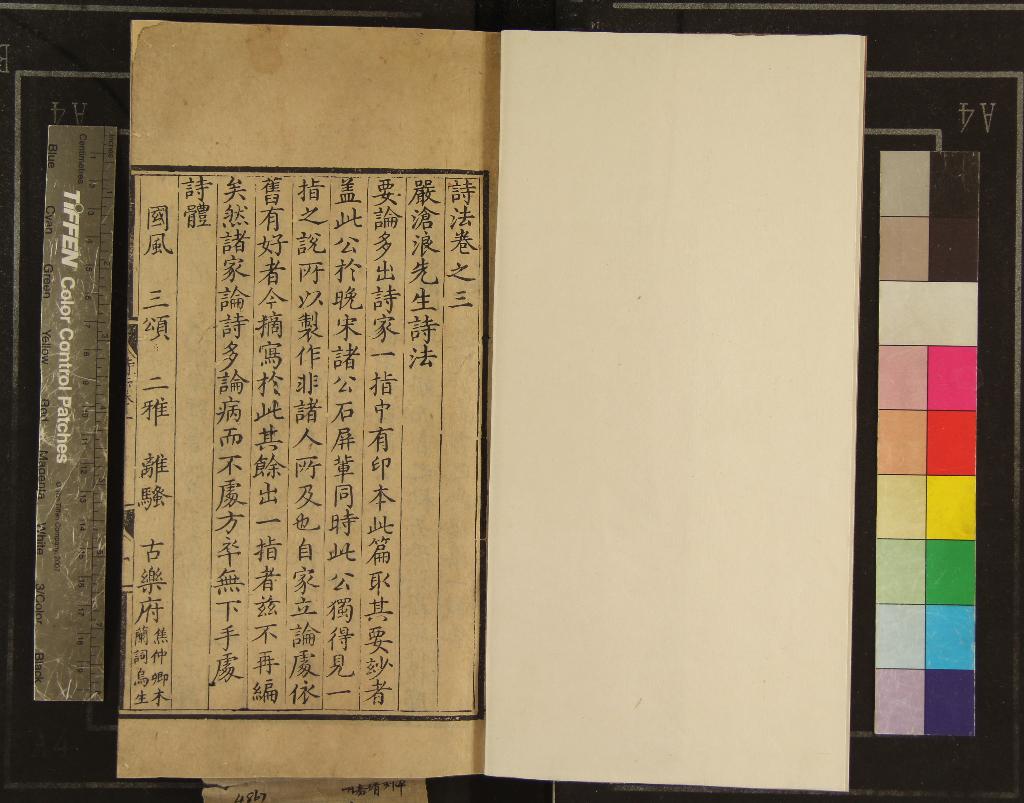 詩法卷之三
嚴滄浪先生詩法
要論多出詩家一指中有印本此篇取其要玅者
盖此公於晚宋諸公石屏軰同時此公獨得見一
指之說所以製作非諸人所及也自家立論處依
舊有好者今摘寫於此其餘出一指者兹不再編
矣然諸家論詩多論病而不處方卒無下手處
詩體
國風 三頌 二雅 離騷 古樂府 焦仲卿木蘭詞烏生
Inches
Centimetres
TIFFEN Color Control Patches
Blue
Cyan
Green
Yellow
Red
Magenta
White
3/Color
Black
A4
A4